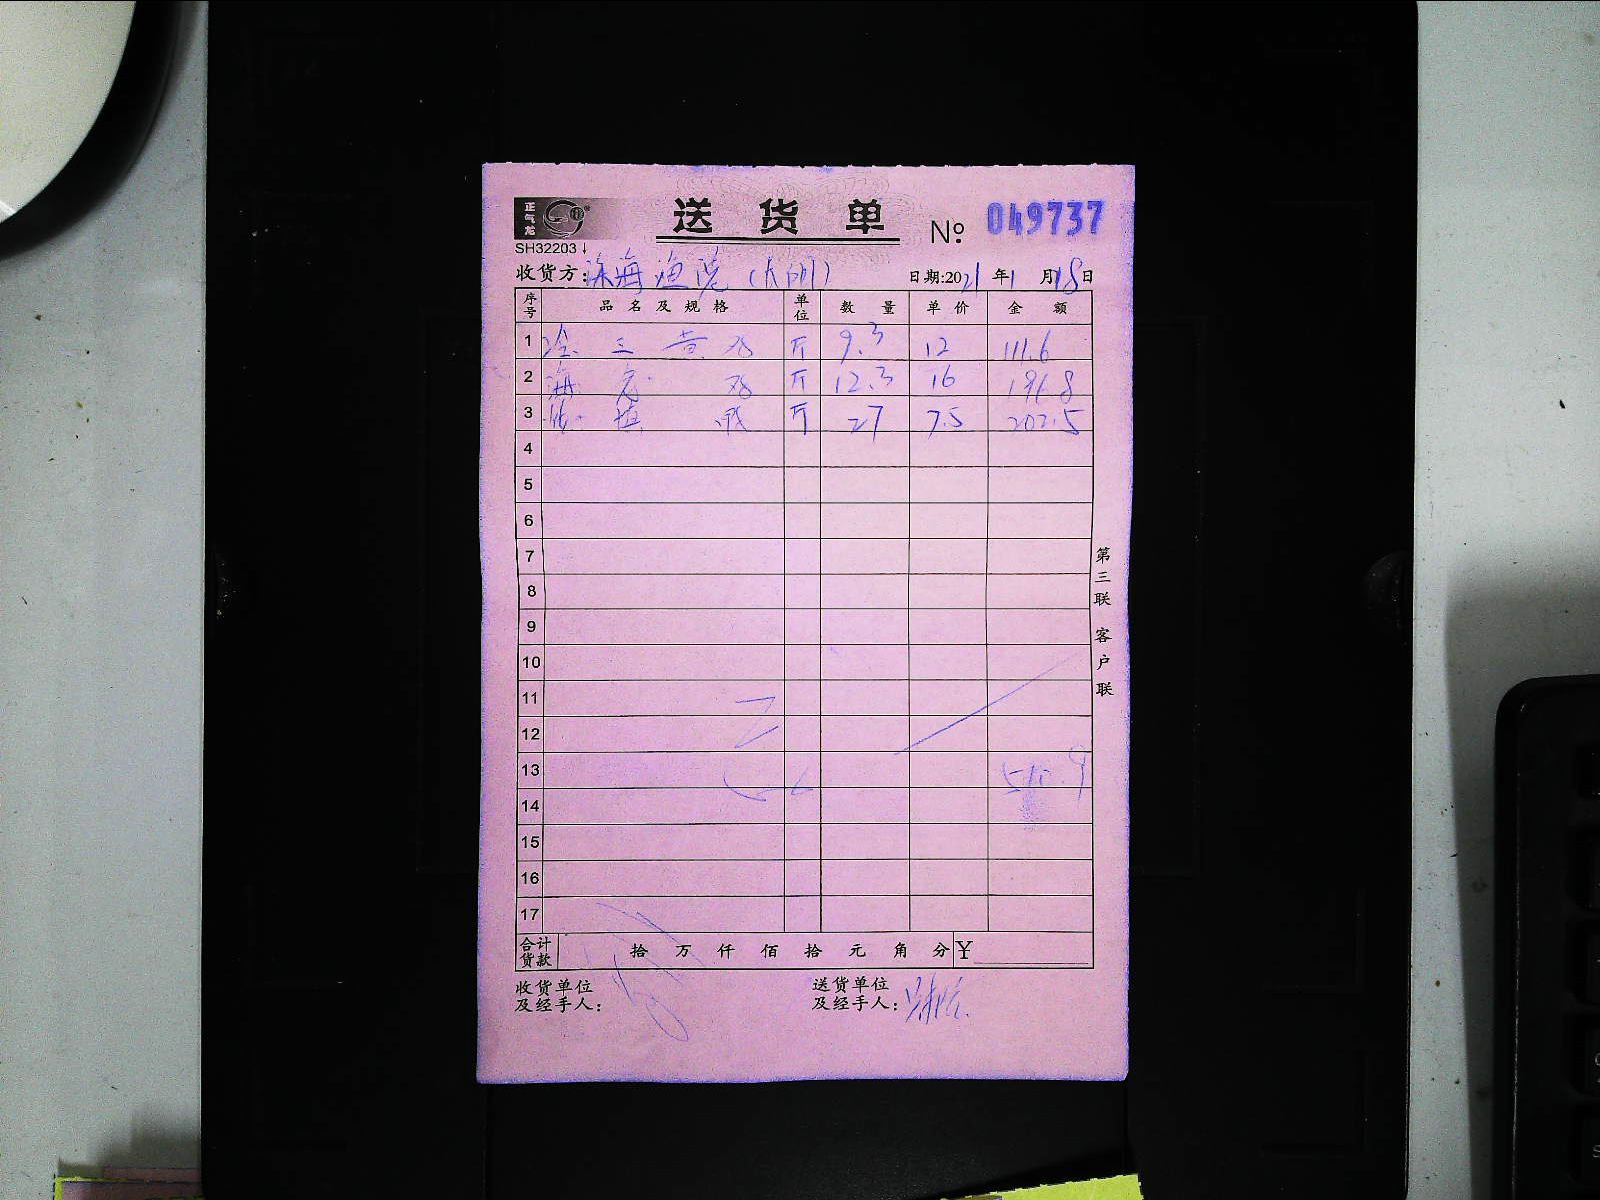 正气龙
送货单 № 049737
SH32203↓
收货方: 深海渔港 日期:2021年1月18日
序号 品名及规格 单位 数量 单价 金额
1 冷三黄鸡 斤 9.3 12 111.6
2 海 鸡 斤 12.3 16 196.8
3 斤 27 7.5 202.5
4
5
6
7
8
9
10
11
12
13 510.9
14
15
16
17
合计货款 拾 万 仟 佰 拾 元 角 分 ¥
收货单位及经手人:
送货单位及经手人:
第三联 客户联